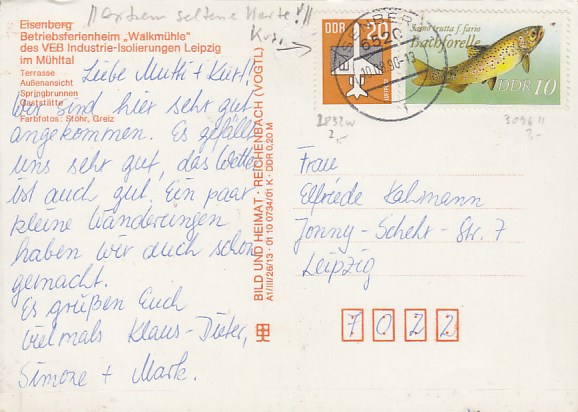 "extrem seltene Karte!"
Eisenberg
Betriebsferienheim „Walkmühle"
des VEB Industrie-Isolierungen Leipzig
im Mühltal
Terrasse
Außenansicht
Springbrunnen
Gaststätte
Farbfotos: Stöhr, Greiz
Liebe Mutti + Kurt!
Wir sind hier sehr gut
angekommen. Es gefällt
uns sehr gut, das Wetter
ist auch gut. Ein paar
kleine Wanderungen
haben wir auch schon
gemacht.
Es grüßen Euch
vielmals Klaus-Dieter,
Simone + Mark.
BILD UND HEIMAT · REICHENBACH (VOGTL)
A1/III/26/13 · 01 10 0734/01 K · DDR 0,20 M
DDR 20
Salmo trutta f. fario
Bachforelle
DDR 10
EISENBERG
6520
10.08.90-13
2832w
2,-
3096 II
3,-
Frau
Elfriede Kalmann
Jonny-Schehr-Str. 7
Leipzig
7022